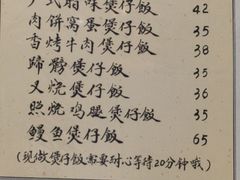 广式腊味煲仔飯 42
肉饼窝蛋煲仔飯 35
香烤牛肉煲仔飯 38
蹄髈煲仔飯 35
叉烧煲仔飯 36
照烧鸡腿煲仔飯 35
鳗鱼煲仔飯 65
(现做煲仔飯需要耐心等待20分钟哦)